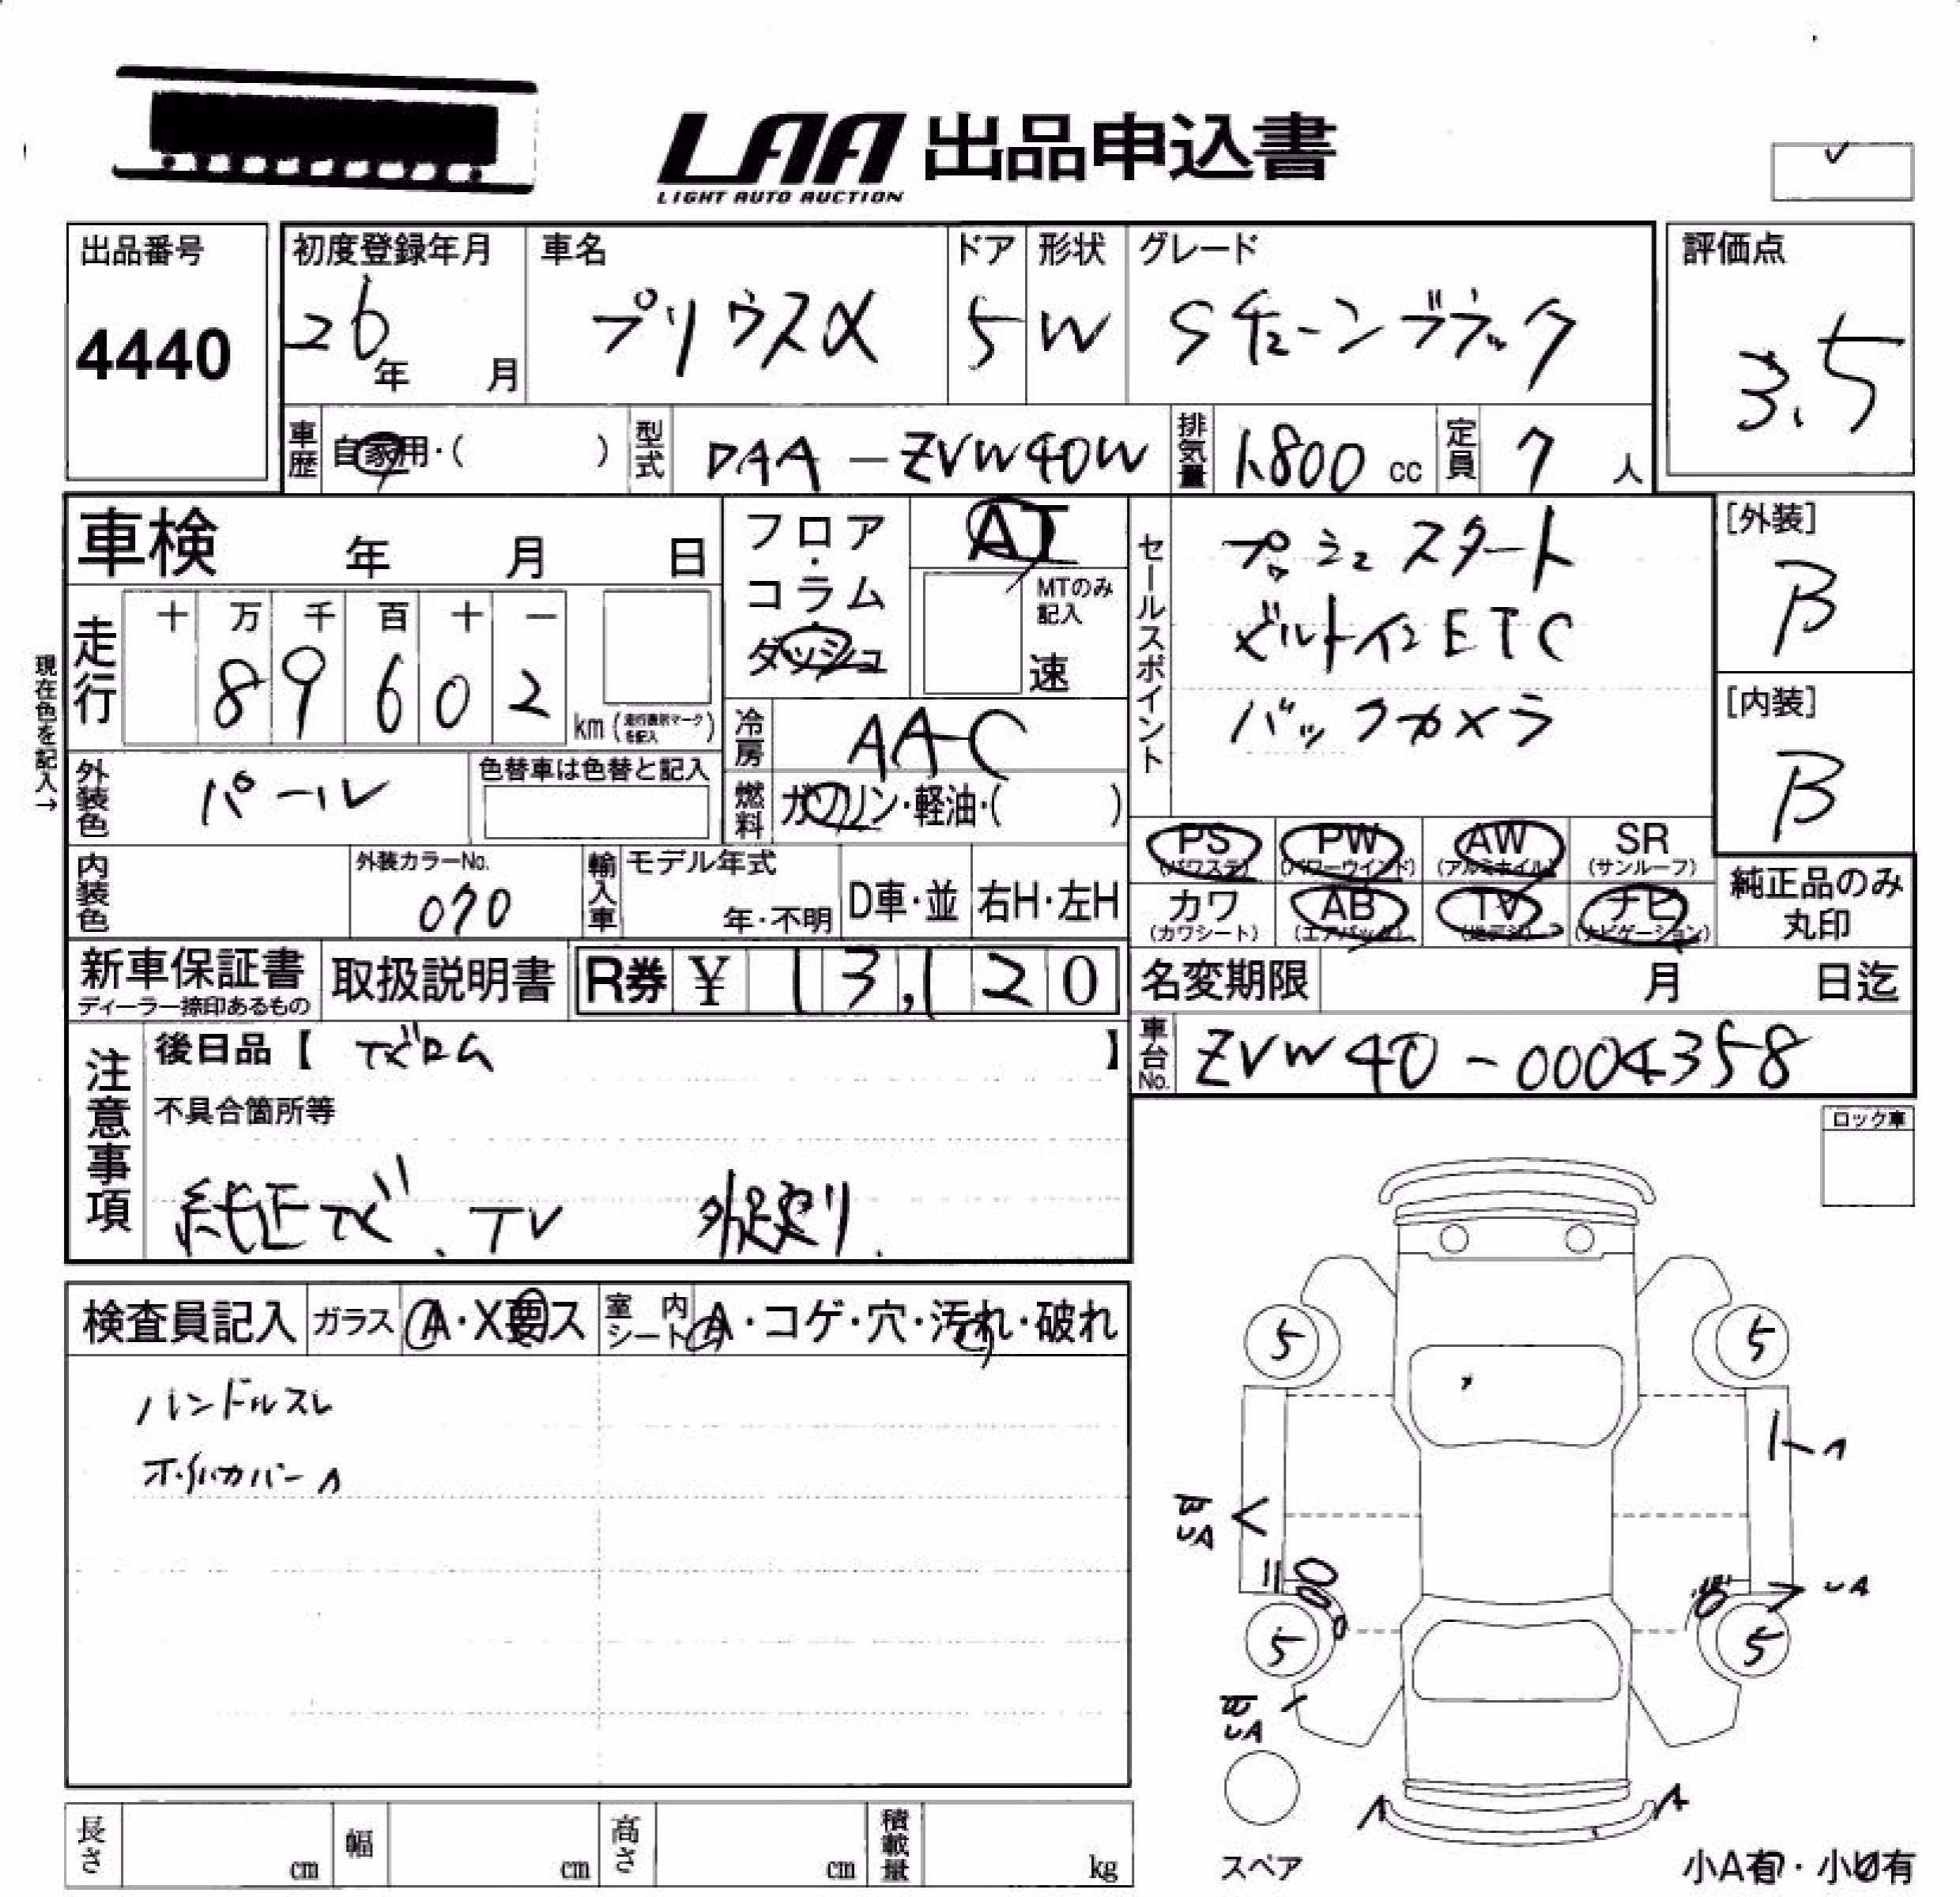 LAA 出品申込書
LIGHT AUTO AUCTION
出品番号
4440
初度登録年月
26年 月
車名
プリウスα
ドア
5
形状
W
グレード
Sチューンブラック
評価点
3.5
車歴 自家用・( )
型式 DAA-ZVW40W
排気量 1,800 cc
定員 7 人
車検 年 月 日
フロア・コラム・ダッシュ
AT
MTのみ記入
速
セールスポイント
プッシュスタート
ビルトインETC
バックカメラ
[外装]
B
[内装]
B
現在色を記入→
走行
十 万 千 百 十 一
8 9 6 0 2
km (走行裏付マークを記入)
冷房 AAC
外装色 パール
色替車は色替と記入
燃料 ガソリン・軽油・( )
PS (パワステ)
PW (パワーウインド)
AW (アルミホイル)
SR (サンルーフ)
カワ (カワシート)
AB (エアバック)
TV (地デジ)
ナビ (ナビゲーション)
純正品のみ丸印
内装色
外装カラーNo.
070
輸入車
モデル年式
年・不明
D車・並
右H・左H
新車保証書
ディーラー捺印あるもの
取扱説明書
R券 ¥ 13,120
名変期限 月 日迄
車台No. ZVW40-0004358
注意事項
後日品【 ナビロム 】
不具合箇所等
純正ナビ、TV
ロック車
検査員記入
ガラス A・X要ス
室内シート A・コゲ・穴・汚れ・破れ
ハンドルスレ
ホイルカバーA
5
5
A
UA
UA
5
5
UA
A
A
スペア
小A有・小U有
長さ cm
幅 cm
高さ cm
積載量 kg